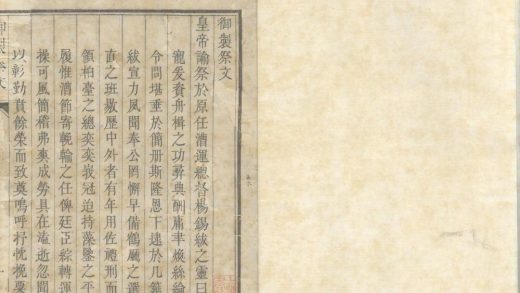 御製祭文
皇帝諭祭於原任漕運總督楊錫紱之靈曰
寵爰資舟楫之功彞典酬庸聿煥絲綸
令問堪垂於簡册斯隆恩下逮於几筵
紱宣力風聞奉公罔懈早備鵷廱之選
直之班歇歷中外者有年用佐禮刑而
領柏臺之總奕奕峩冠迨持藻鑒之平
履惟清節寄輓輸之任俾廷正綜轉運
操可風簡稽弗爽成勞具在溘逝忽聞
以彰勤賁餘榮而致奠嗚呼抒忱挽粟
御製祭文